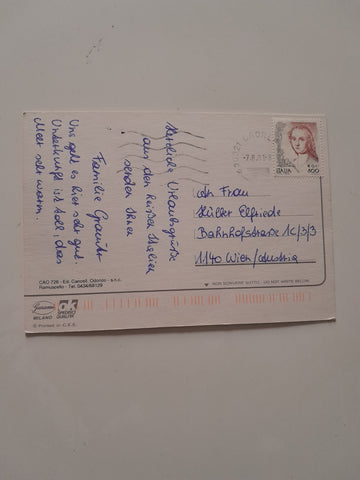 Herzliche Urlaubsgrüße
aus dem heißen Italien
senden Ihnen
Familie
Uns geht es hier sehr gut.
Unterkunft ist toll, das
Meer sehr warm..
An Frau
Müller Elfriede
Bahnhofstraße 1c/3/3
1140 Wien/Austria
ITALIA
800
CAO 726 - Ed. Cancell. Odorico - s.n.c.
Ramuscello - Tel. 0434/69129
NON SCRIVERE SOTTO - DO NOT WRITE BELOW
MILANO
OK
SPECIMEN
QUALITÀ
© Printed in C.E.E.